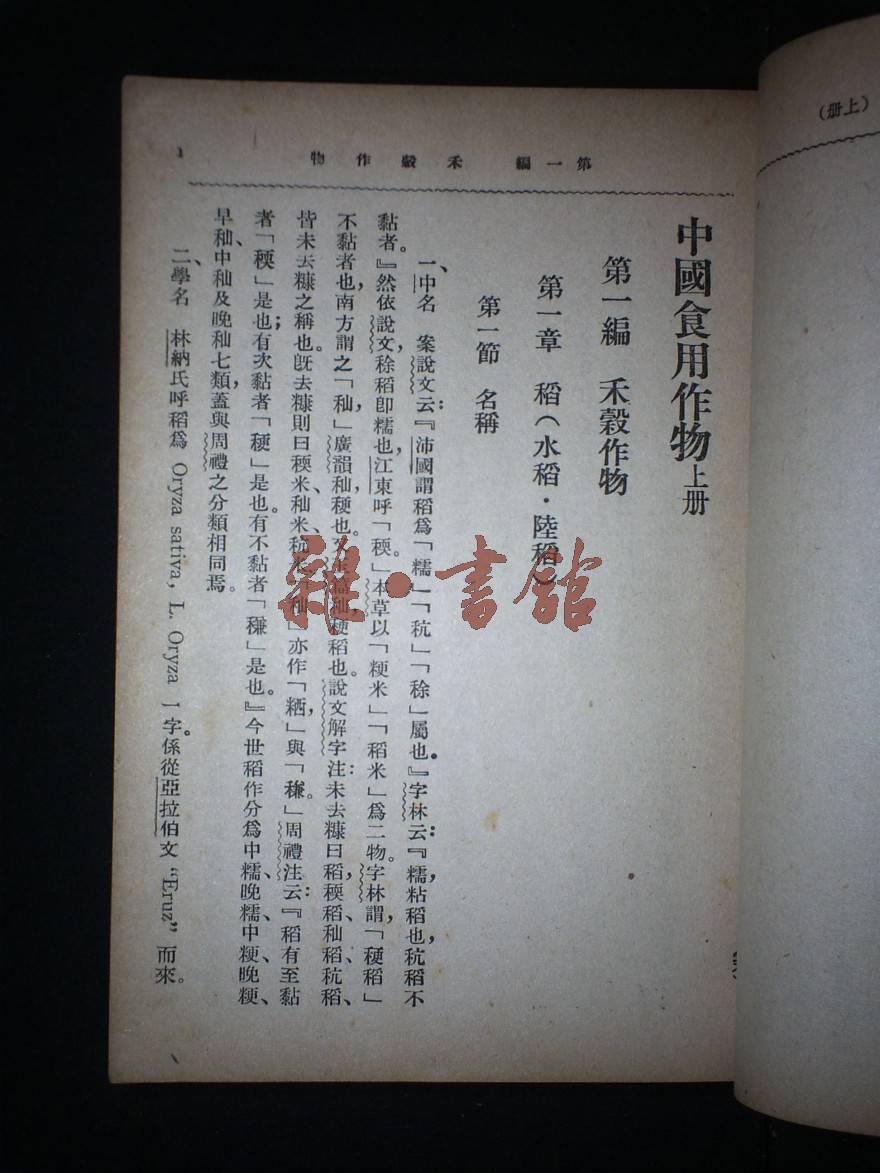 (上册)
第一編 禾穀作物
1
中國食用作物上册
第一編 禾穀作物
第一章 稻(水稻·陸稻)
第一節 名稱
一、中名 案說文云:『沛國謂稻爲「糯」「秔」「稌」屬也。』字林云:『糯粘稻也,秔稻不
黏者。』然依說文,稌稻卽糯也,江東呼「稬」。本草以「粳米」「稻米」爲二物。字林謂,「稉稻」
不黏者也,南方謂之「秈」,廣韻,秈稉也。秈稉稻也。說文解字注:未去糠曰稻,稬稻、秈稻、秔稻、
皆未去糠之稱也。旣去糠則曰稬米、秈米、秔米、「秈」亦作「粞」,與「稴」。周禮注云:『稻有至黏
者「稬」是也;有次黏者「稉」是也。有不黏者「稴」是也。』今世稻作分爲中糯、晚糯、中粳、晚粳、
早秈、中秈及晚秈七類,蓋與周禮之分類相同焉。
二、學名 林納氏呼稻爲 Oryza sativa, L. Oryza 1 字。係從亞拉伯文 “Eruz” 而來。
雜·書館